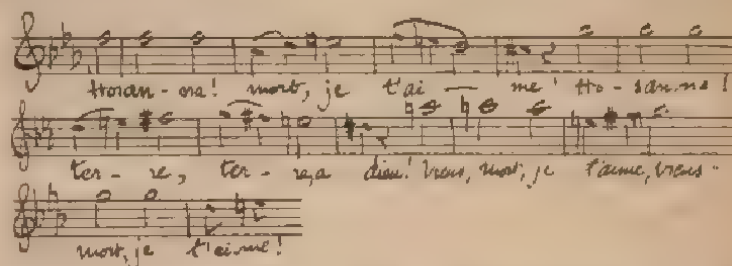 Hosan-na! mort, je t'ai — me! Ho-sanna!
ter-re, ter-re, a dieu! Viens, mort, je t'aime, viens-
mort, je t'aime!